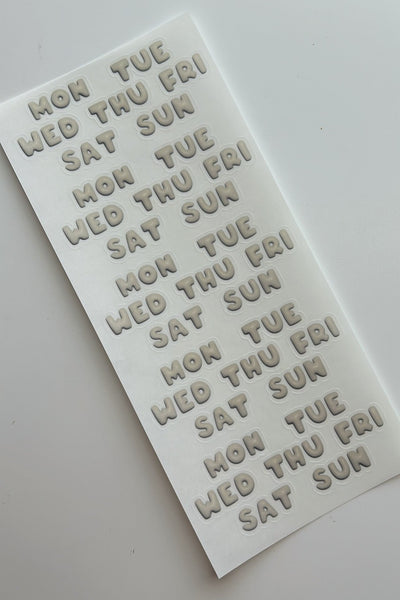 MON TUE
WED THU FRI
SAT SUN
MON TUE
WED THU FRI
SAT SUN
MON TUE
WED THU FRI
SAT SUN
MON TUE
WED THU FRI
SAT SUN
MON TUE
WED THU FRI
SAT SUN